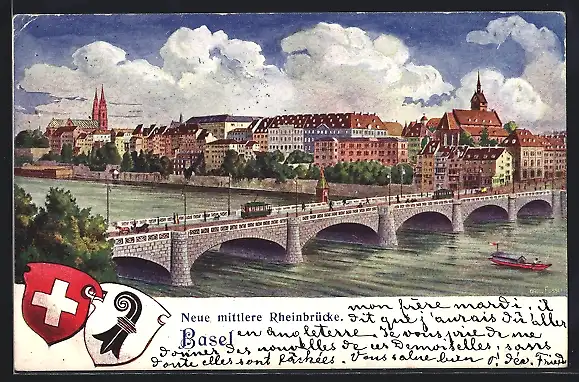 Neue mittlere Rheinbrücke.
Basel
mon frère mardi, il
dit que j'aurais dû aller
en angleterre je vous prie de me
donner des nouvelles de ces demoiselles, sans
doute elles sont fâchées. Vous salue bien